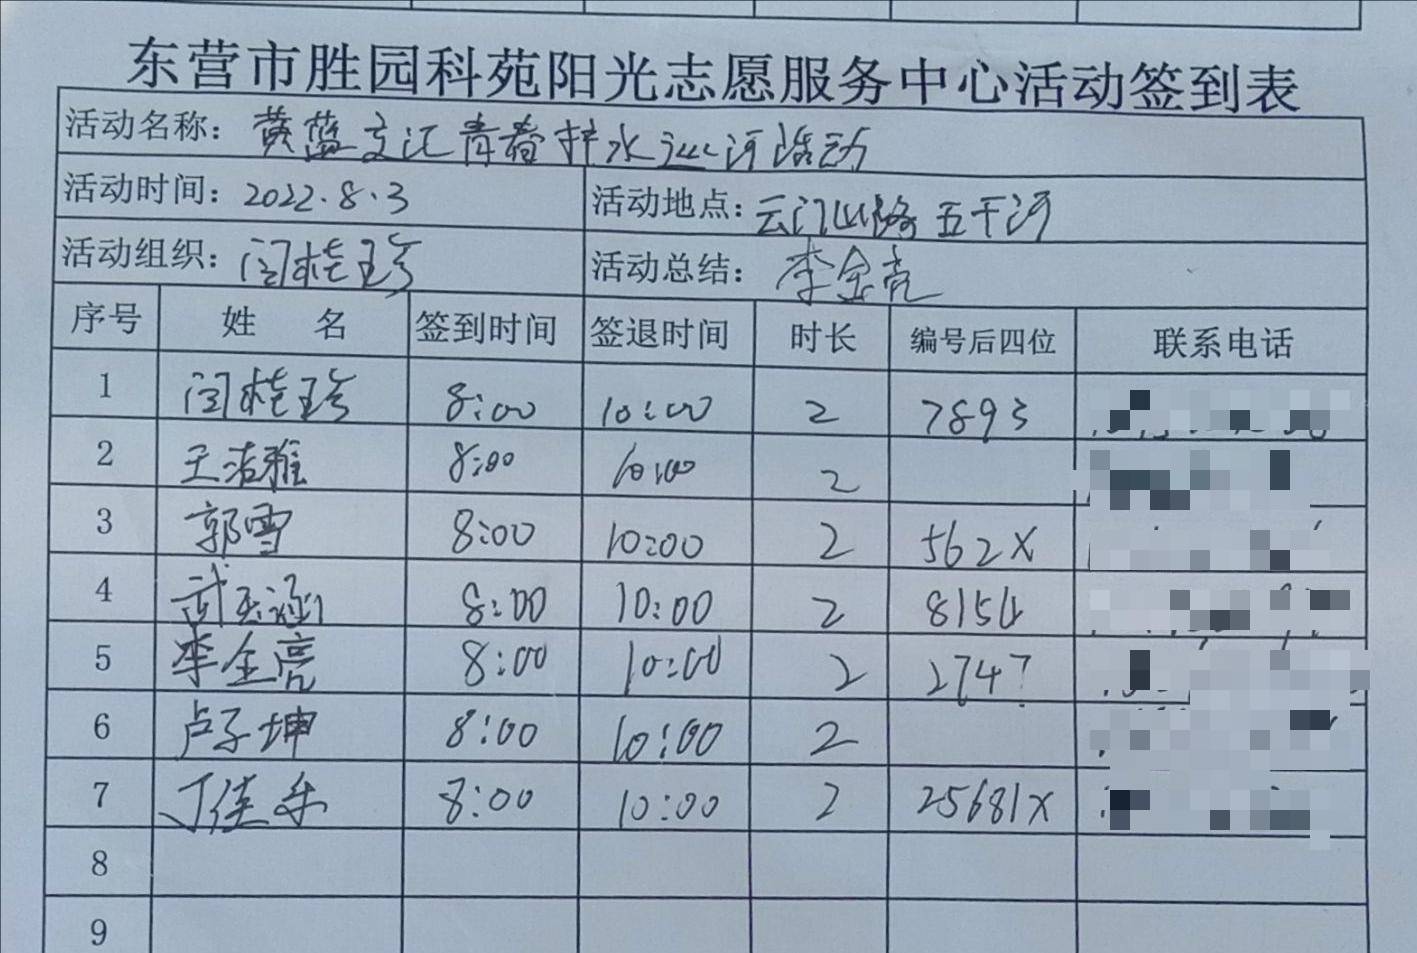 东营市胜园科苑阳光志愿服务中心活动签到表
活动名称：黄蓝交汇青春护水巡河活动
活动时间：2022.8.3 活动地点：云门山路五干河
活动组织：闫桂珍 活动总结：李金亮
序号 姓 名 签到时间 签退时间 时长 编号后四位 联系电话
1 闫桂珍 8:00 10:00 2 7893
2 王洁雅 8:00 10:00 2
3 郭雪 8:00 10:00 2 562X
4 武玉涵 8:00 10:00 2 8154
5 李金亮 8:00 10:00 2 2747
6 卢子坤 8:00 10:00 2
7 丁佳乐 8:00 10:00 2 25681X
8
9